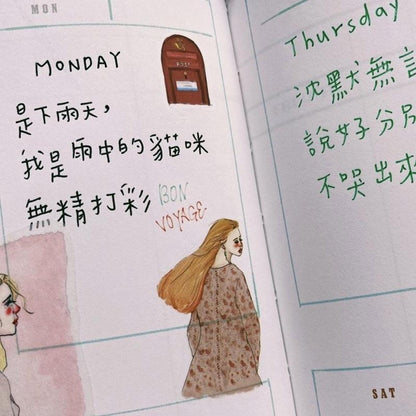 MON
MONDAY
POST
是下雨天,
我是雨中的貓咪
無精打彩
BON
VOYAGE
Thursday
沈默無言
說好分別
不哭出來
SAT